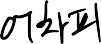 어차피